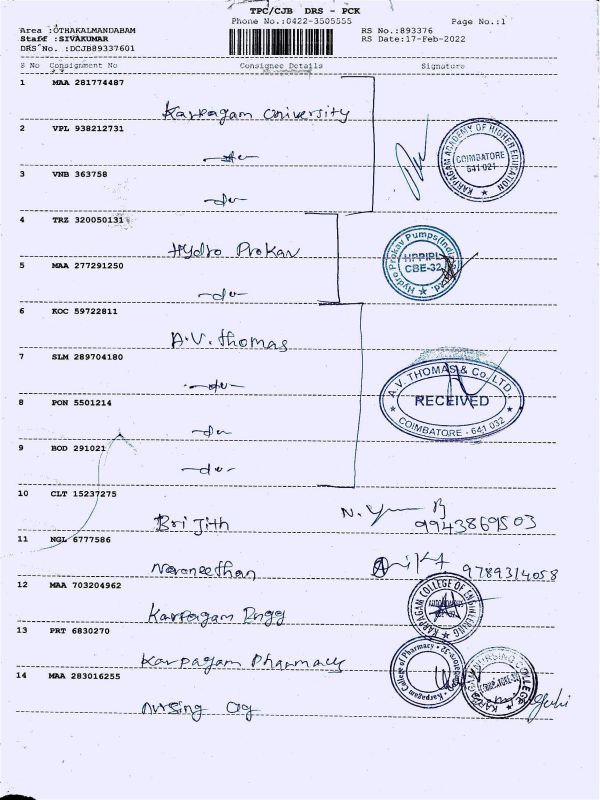 TPC/CJB DRS - PCK
Phone No.:0422-3505555 Page No.:1
Area :OTHAKALMANDABAM RS No.:893376
Staff :SIVAKUMAR RS Date:17-Feb-2022
DRS No. :DCJB89337601
S No Consignment No Consignee Details Signature
1 MAA 281774487
Karpagam University
2 VPL 938212731
-do-
KARPAGAM ACADEMY OF HIGHER EDUCATION
COIMBATORE
641 021
3 VNB 363758
-do-
4 TRZ 320050131
Hydro Prokav
Hydro Prokav Pumps(India)
HPPIPL
CBE-32
5 MAA 277291250
-do-
6 KOC 59722811
A.V. Thomas
7 SLM 289704180
-do-
A.V. THOMAS & Co. LTD.,
RECEIVED
COIMBATORE - 641 032
8 PON 5501214
-do-
9 BOD 291021
-do-
10 CLT 15237275
Brijith 9943869503
11 NGL 6777586
Navaneethan 9789314058
12 MAA 703204962
Karpagam Engg
KARPAGAM COLLEGE OF ENGINEERING
13 PRT 6830270
Karpagam Pharmacy
Karpagam College of Pharmacy
14 MAA 283016255
Nursing Clg
KARPAGAM NURSING COLLEGE